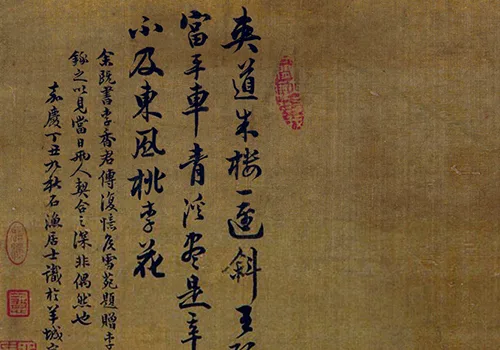 夾道朱樓一逕斜王
富平車青溪盡是辛
不及東風桃李花
余既書李香君傳復憶侯雪苑題贈李
錄之以見當日兩人契合之深非偶然也
嘉慶丁丑九秋石漁居士識於羊城